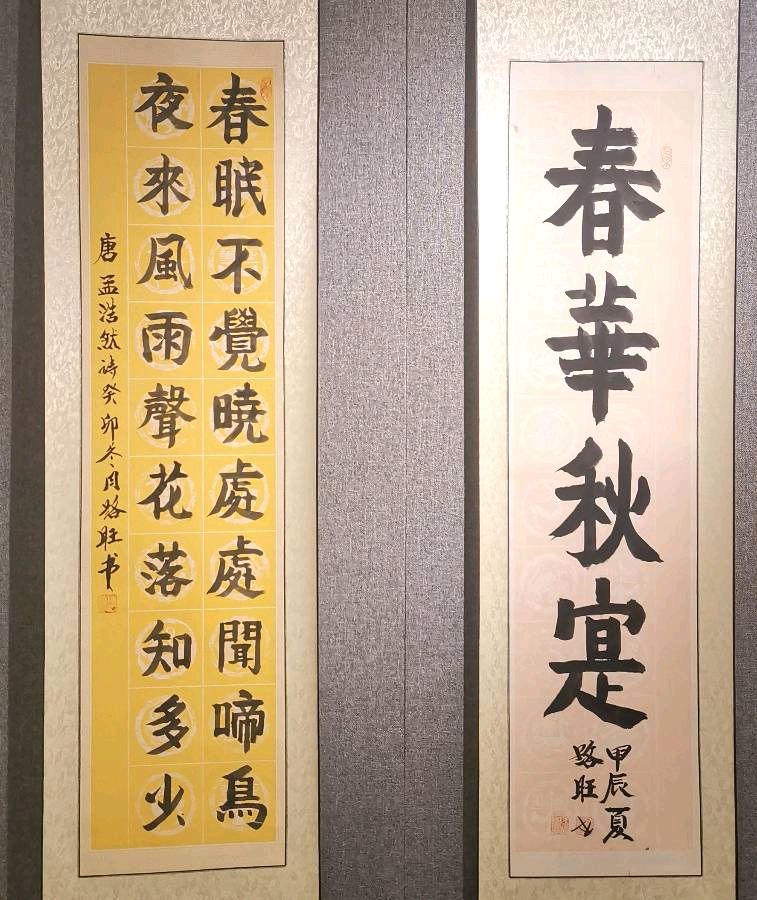 春華秋寔
甲辰夏
路旺书
春眠不覺曉處處聞啼鳥
夜來風雨聲花落知多少
唐孟浩然诗癸卯冬月路旺书